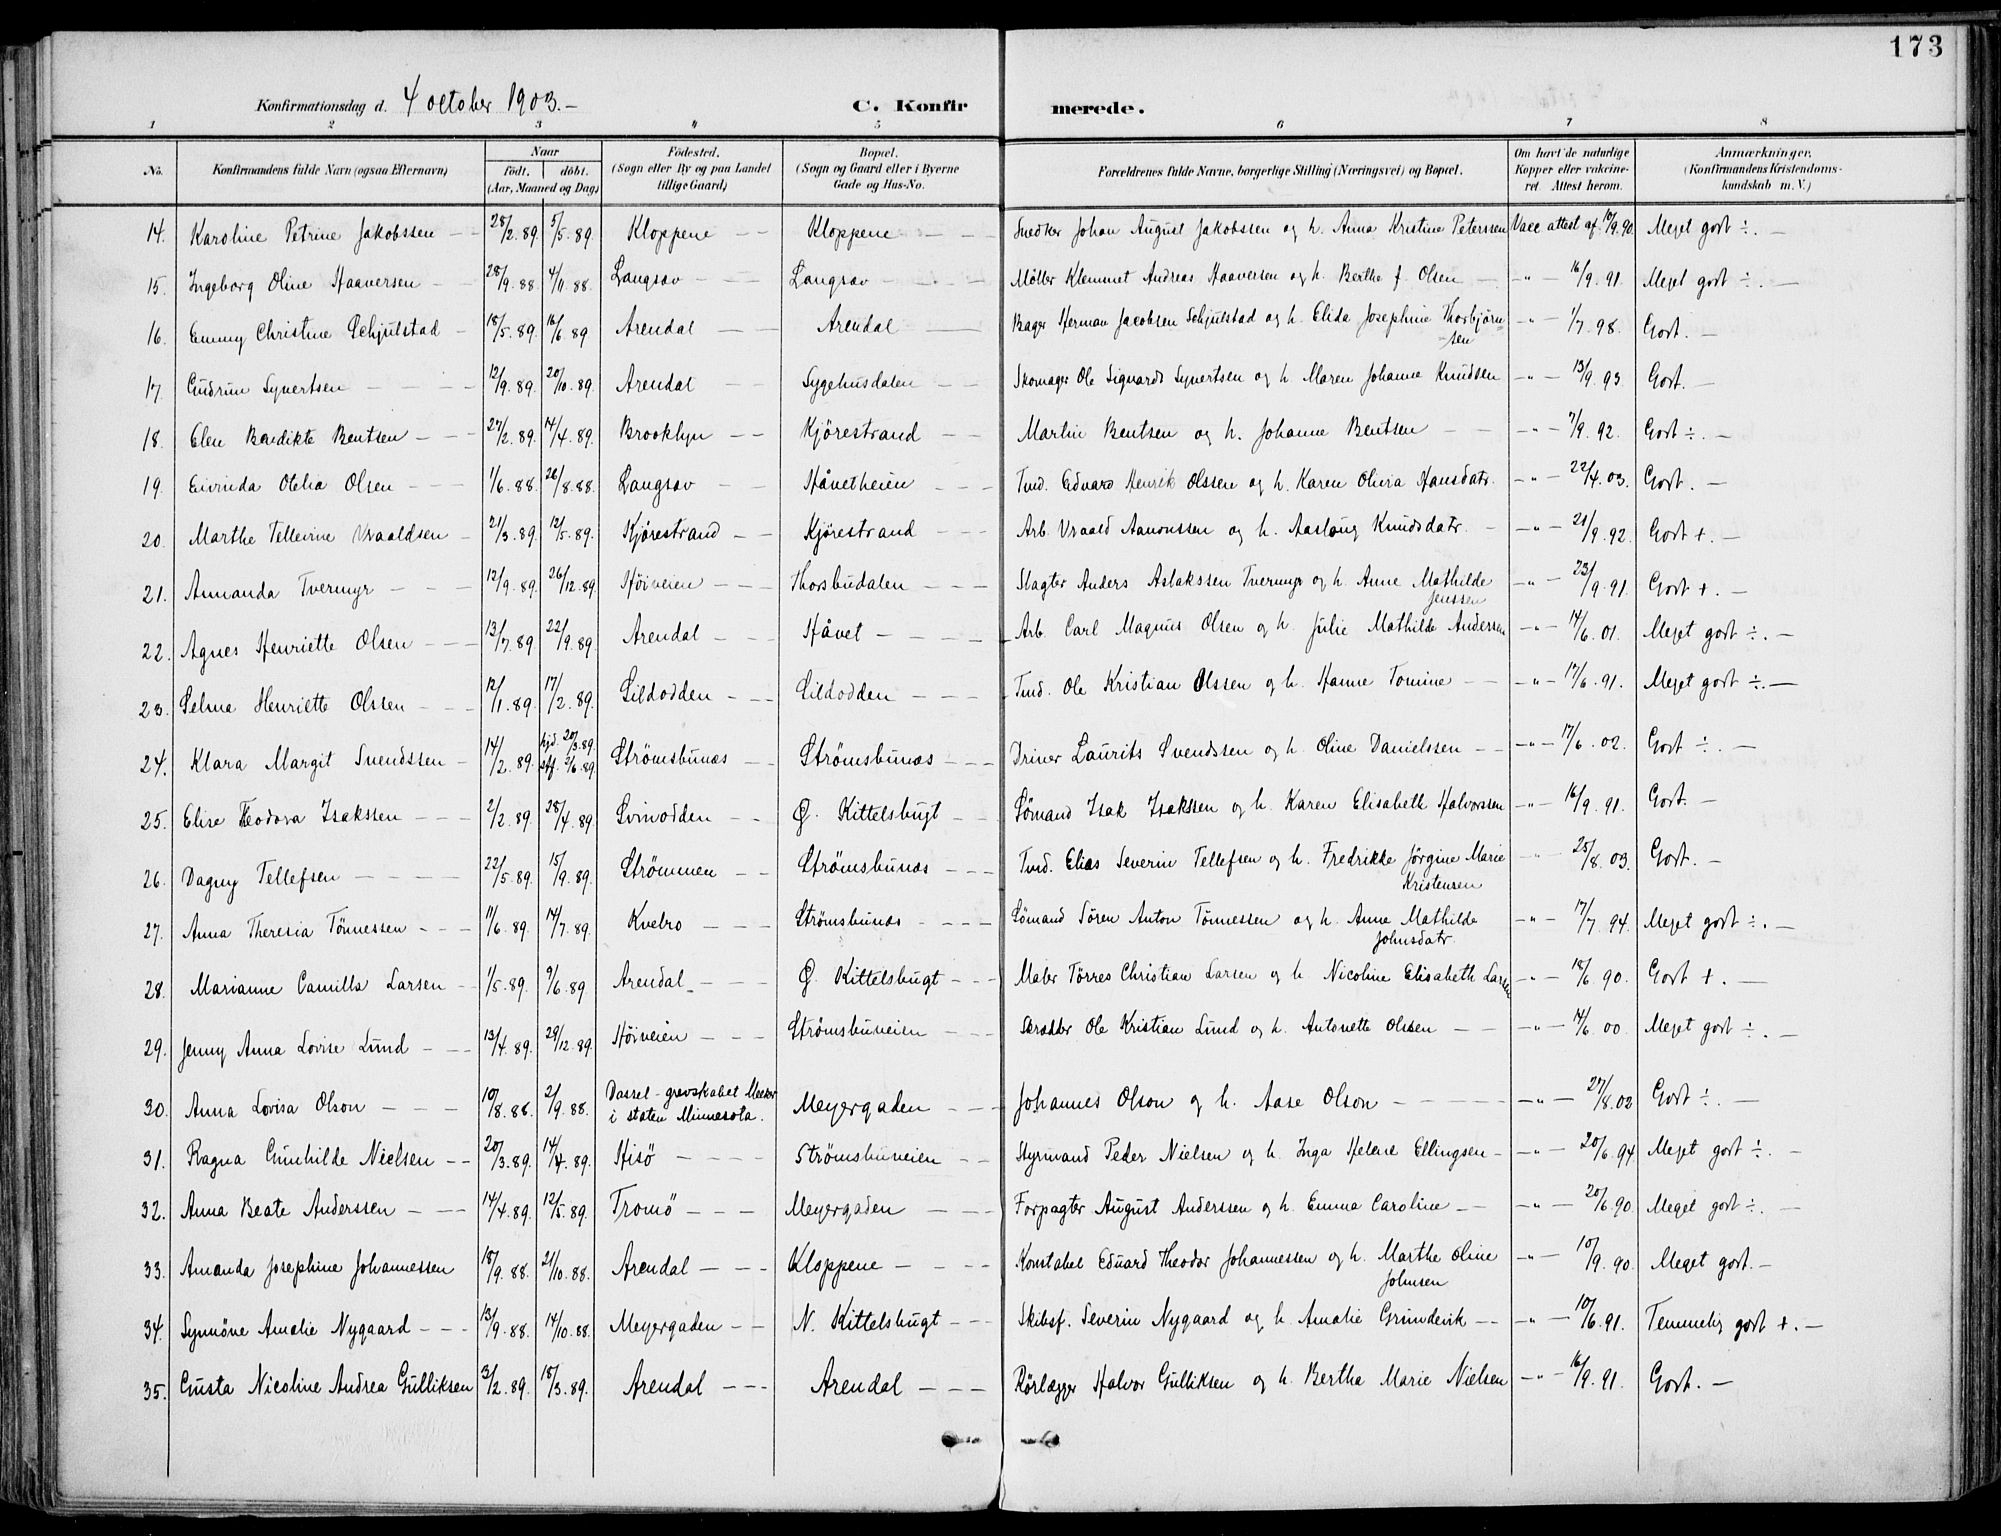 173
Konfirmationsdag d. 4 october 1903.-
C. Konfirmerede.
1 2 3 4 5 6 7 8
No. | Konfirmandens fulde Navn (ogsaa Efternavn) | Naar født. døbt. (Aar, Maaned og Dag) | Fødested. (Sogn eller By og paa Landet tillige Gaard) | Bopæl. (Sogn og Gaard eller i Byerne Gade og Hus-No. | Forældrenes fulde Navne, borgerlige Stilling (Næringsvei) og Bopæl. | Om havt de naturlige Kopper eller vakcineret. Attest herom. | Anmærkninger, (Konfirmandens Kristendomskundskab m. V.)
14. Karoline Petrine Jakobssen 28/2.89. 5/5.89. Kloppene Kloppene Snedker Johan August Jakobssen og h. Anna Kristine Peterssen Vacc attest af 10/9.90. Meget godt ÷.
15. Ingeborg Oline Haaversen 28/9.88. 4/11.88. Langsæv Langsæv Møller Klemmet Andreas Haaversen og h. Berthe J. Olsen -"- 16/9.91. Meget godt ÷.
16. Emmy Christine Schjulstad 18/5.89. 16/6.89 Arendal Arendal Bager Herman Jacobsen Schjulstad og h. Elida Josephine Thorbjørnsen -"- 1/7.98. Godt.
17. Gudrun Syvertsen 12/9.89. 20/10.89 Arendal Sygehusdalen Skomager Ole Sigvards Syvertsen og h. Maren Johanne Knudsen -"- 13/9.93. Godt.
18. Elen Benedikte Bentsen 27/2.89. 14/4.89. Brooklyn Kjørestrand Martin Bentsen og h. Johanne Bentsen -"- 7/9.92. Godt ÷.
19. Eivinda Otelia Olsen 1/6.88. 26/8.88. Langsæv Håvetheien Tmd. Edvard Henrik Olssen og h. Karen Olivia Hansdatr. -"- 22/4.03. Godt.
20. Marthe Tellevine Vraaldsen 21/3.89. 12/5.89. Kjørestrand Kjørestrand Arb. Vraald Aanonssen og h. Aaslaug Knudsdatr. -"- 21/9.92. Godt +.
21. Amanda Tvermyr 12/9.89. 26/12.89. Höiveien Thorsbudalen Slagter Anders Aslakssen Tvermyr og h. Anne Mathilde Jenssen -"- 23/9.91. Godt +.
22. Agnes Henriette Olsen 13/7.89. 22/9.89. Arendal Håvet Arb. Carl Magnus Olsen og h. Julie Mathilde Anderssen -"- 14/6.01. Meget godt ÷.
23. Selma Henriette Olssen 12/1.89. 17/2.89. Sildodden Sildodden Tmd. Ole Kristian Olssen og h. Hanne Tomine -"- 17/6.91. Meget godt ÷.
24. Klara Margit Svendssen 14/2.89. hjd. 20/3.89. stf. 2/6.89. Strømsbunæs Strømsbunæs Driver Laurits Svendssen og h. Oline Danielssen -"- 17/6.02. Godt ÷.
25. Elise Theodora Isakssen 2/2.89. 28/4.89. Svinodden Ø. Kittelsbugt Sømand Isak Isakssen og h. Karen Elisabeth Halvorssen -"- 16/9.91. Godt.
26. Dagny Tellefsen 22/5.89. 15/9.89. Strømmen Strømsbunæs Tmd. Elias Severin Tellefsen og h. Fredrikke Jørgine Marie Kristensen -"- 25/8.03. Godt.
27. Anna Theresia Tønnessen 11/6.89. 14/7.89. Kvebro Strømsbunæs Sømand Søren Anton Tønnessen og h. Anne Mathilde Johnsdatr. -"- 17/7.94. Meget godt ÷.
28. Marianne Camilla Larsen 1/5.89. 9/6.89 Arendal Ø. Kittelsbugt Maler Tørres Christian Larsen og h. Nicoline Elisabeth Larsen -"- 18/6.90. Godt +.
29. Jenny Anna Lovise Lund 13/4.89. 29/12.89. Höiveien Strømsbuveien Skrædder Ole Kristian Lund og h. Antonette Olssen -"- 14/6.00. Meget godt ÷.
30. Anna Lovisa Olson 10/8.88. 2/9.88. Dassel-grevskabet Meeker i staten Minnesota. Meyergaden Johannes Olson og h. Aase Olson -"- 27/8.02 Godt ÷.
31. Ragna Gunhilde Nielsen 20/3.89. 14/4.89. Hisö Strømsbuveien Styrmand Peder Nielsen og h. Inga Helene Ellingsen -"- 20/6.94 Meget godt ÷.
32. Anna Beate Anderssen 14/4.89. 12/5.89. Tromö Meyergaden Forpagter August Anderssen og h. Emma Caroline -"- 20/6.90. Meget godt ÷.
33. Amanda Josephine Johannessen 18/9.88. 21/10.88. Arendal Kloppene Konstabel Eduard Theodor Johannessen og h. Marthe Oline Johnsen -"- 10/9.90. Meget godt.
34. Synnöve Amalie Nygaard 13/9.88. 14/10.88. Meyergaden N. Kittelsbugt Skibsf. Severin Nygaard og h. Amalie Grundevik -"- 10/6.91. Temmelig godt +.
35. Gusta Nicoline Andrea Gulliksen 3/2.89. 18/3.89. Arendal Arendal Rørlægger Halvor Gulliksen og h. Bertha Marie Nielsen -"- 16/9.91. Godt.